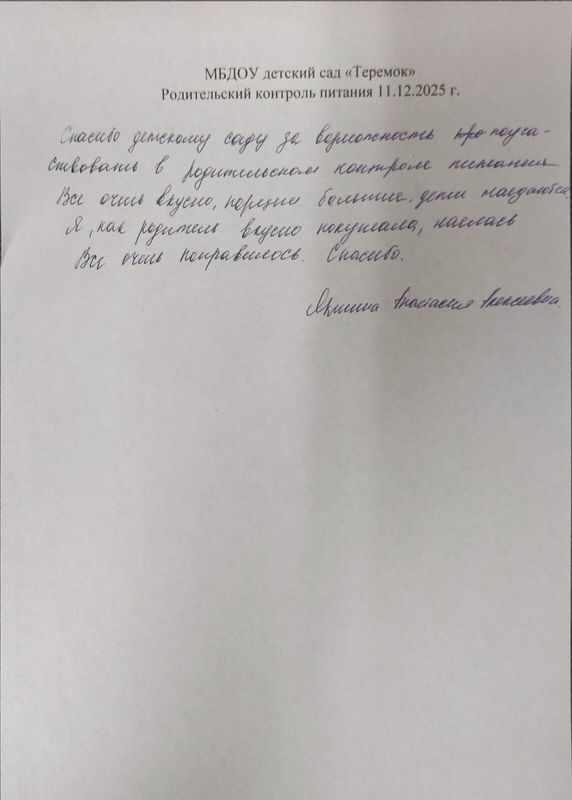 МБДОУ детский сад «Теремок»
Родительский контроль питания 11.12.2025 г.
Спасибо детскому саду за возможность поуча-
ствовать в родительском контроле питания
Все очень вкусно, порции большие, дети наедаются.
Я, как родитель вкусно покушала, наелась.
Все очень понравилось. Спасибо.
Анастасия Алексеевна